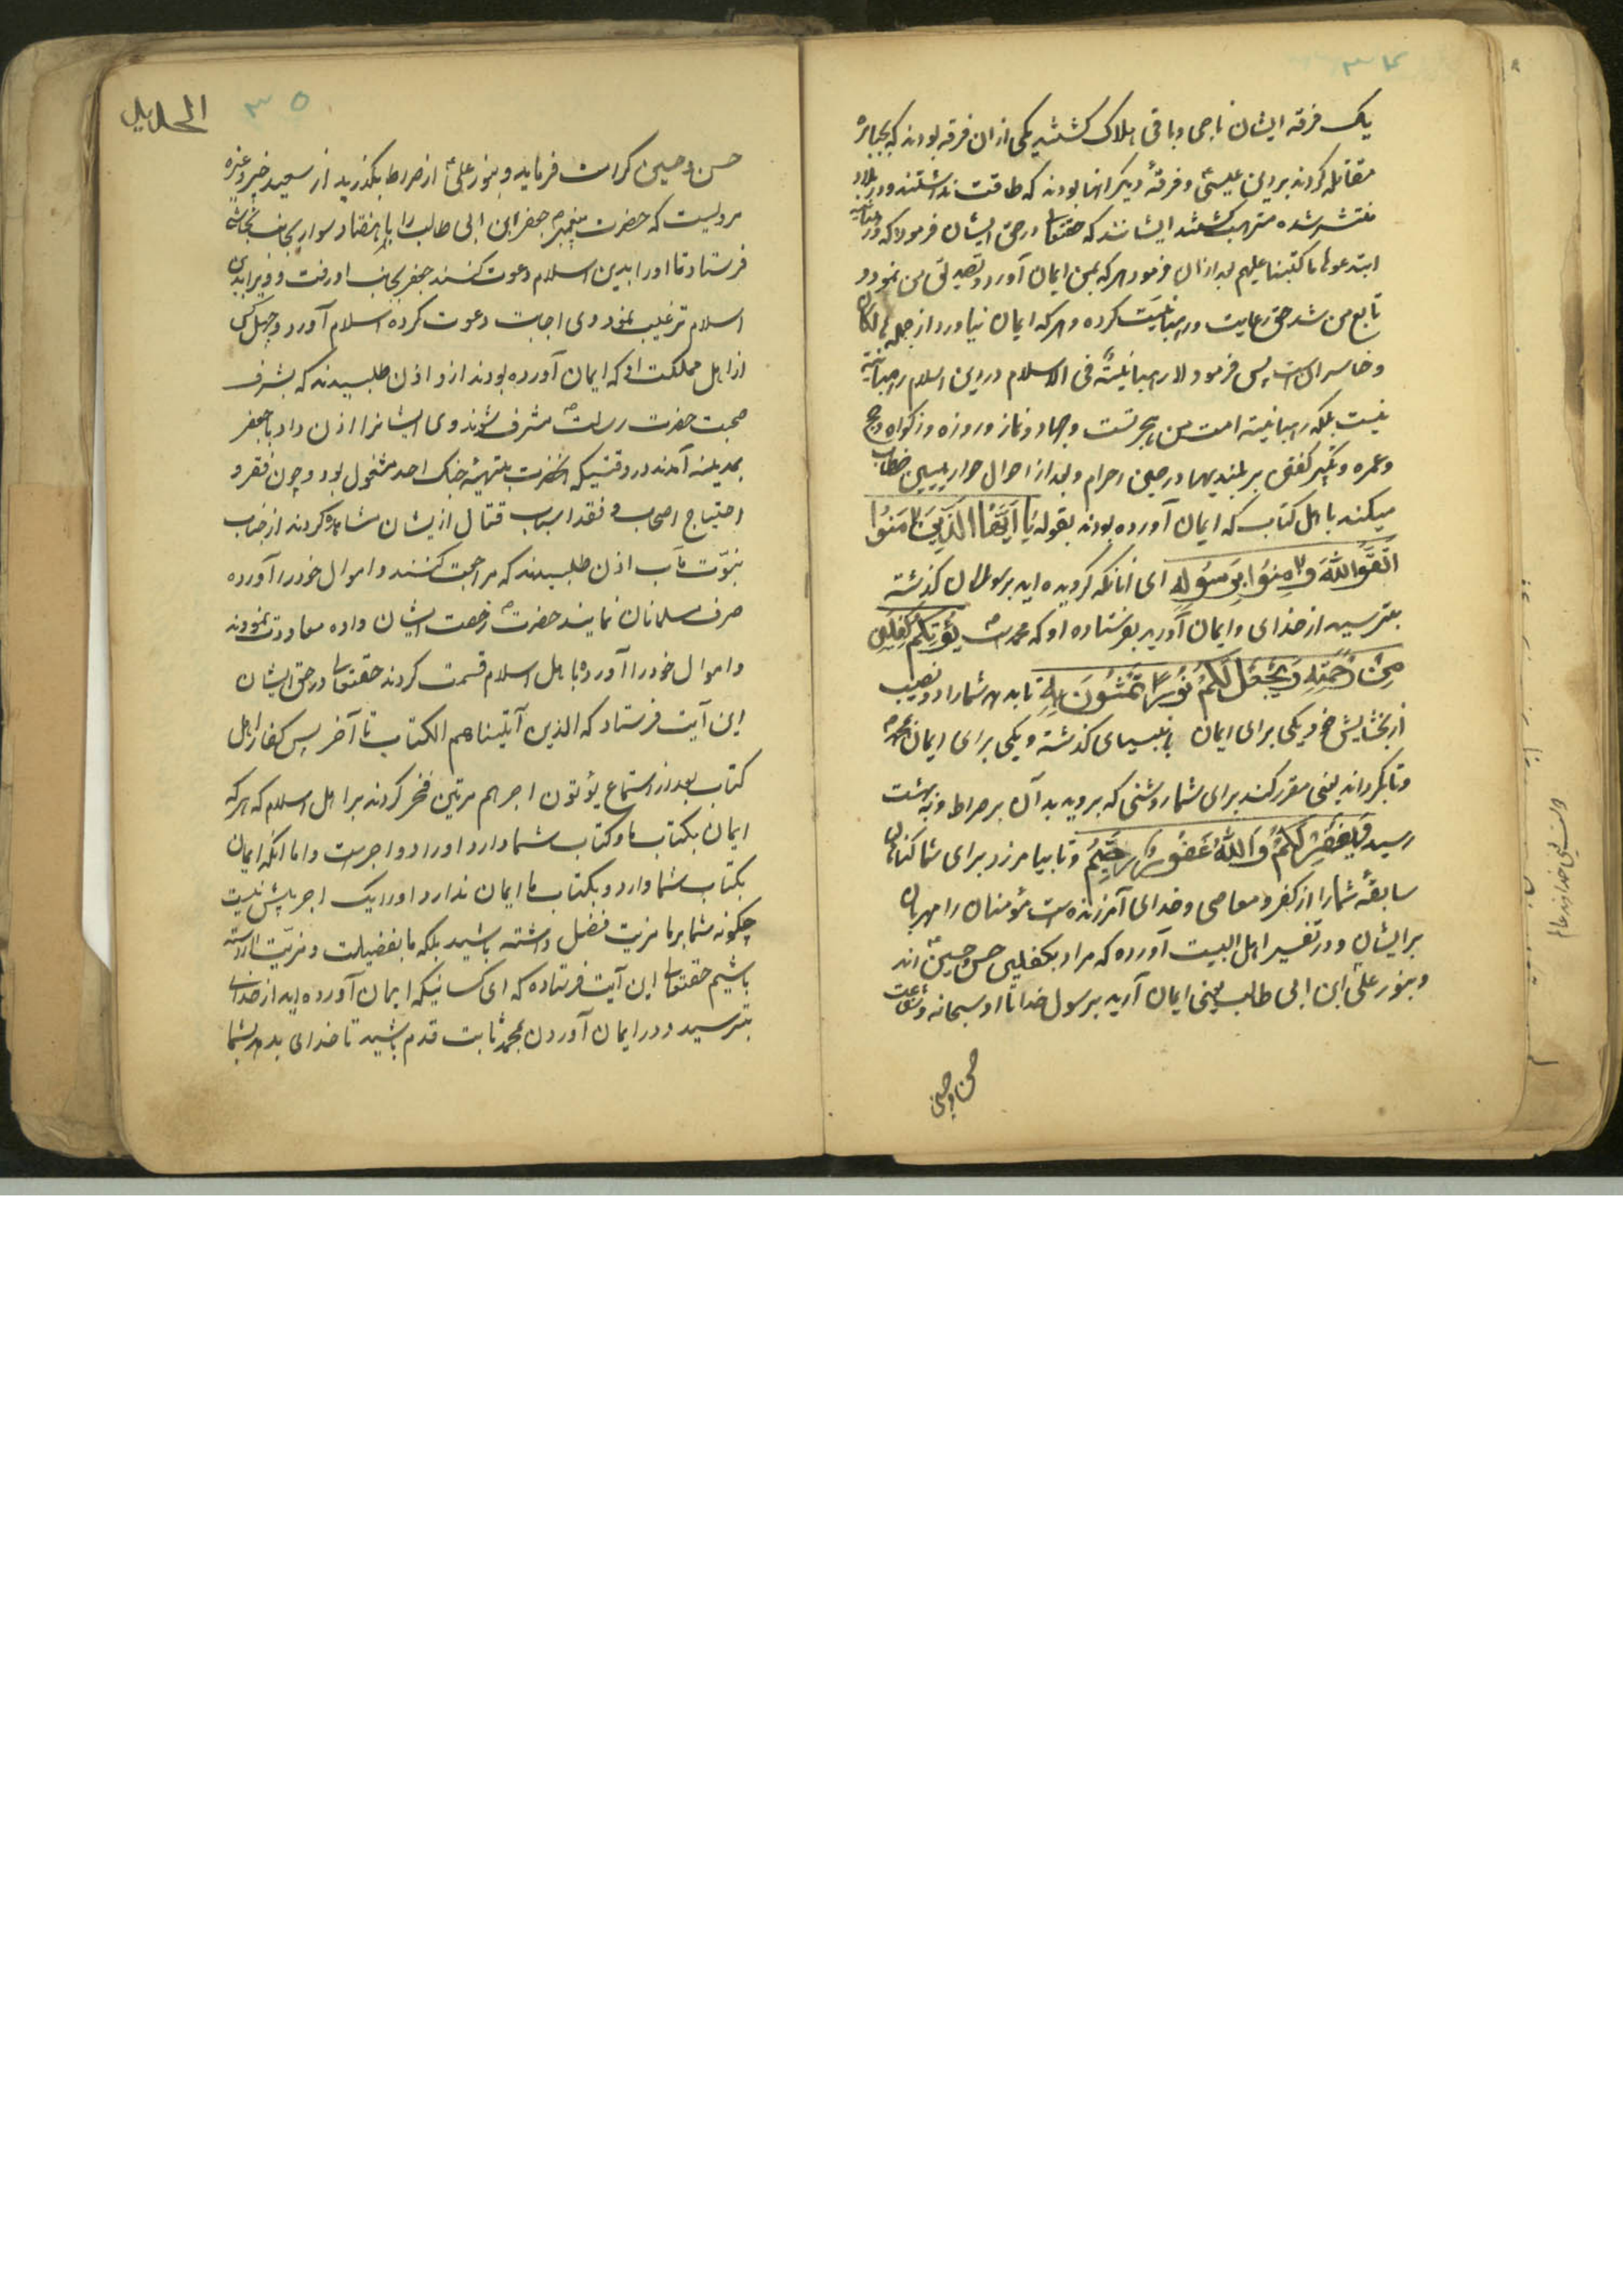 ۳۴
یک فرقه ایشان ناجی و باقی هلاک کشتند یکی ازان فرقه بودند که بجبابره
مقاتله کردند بر دین عیسیٰ و فرقهٔ دیکر انها بودند که طاقت نداشتند و در بلاد
منتشر شده مترهب کشتند ایشانند که حقتعالی در حق ایشان فرمود که و رهبانیة
ابتدعوها ما کتبنا علیهم بعد ازان فرمود هرکه بمن ایمان آورد و تصدیق من نمود و
تابع من شد حق رعایت رهبانیت کرده و هرکه ایمان نیاورد از جمله هالکان
و خاسران است پس فرمود لا رهبانیةً فی الاسلام در دین اسلام رهبانیة
نیست بلکه رهبانیة امت من هجرتست و جهاد و نماز و روزه و زکواه و حج
و عمره و تکبیر کفتن بر بلندیها در حین احرام و بعد از احوال حواریین خطاب
میکند با اهل کتاب که ایمان آورده بودند بقوله یَا اَیُّهَا الَّذِینَ اٰمَنُوا
اتَّقُوا اللّٰهَ وَ اٰمِنُوا بِرَسُولِهِ ای انانکه کرویده اید برسولان کذشته
بترسید از خدای و ایمان آورید بفرستاده او که محمدست یُؤْتِکُمْ کِفْلَیْنِ
مِنْ رَحْمَتِهِ وَ یَجْعَلْ لَکُمْ نُورًا تَمْشُونَ بِهِ تا بدهد شما را دو نصیب
از بخشایش خود یکی برای ایمان بانبیای کذشته و یکی برای ایمان بمحمد
و تا بکرداند یعنی مقرر کند برای شما روشنی که بروید بدآن بر صراط و به بهشت
رسید وَ یَغْفِرْ لَکُمْ وَ اللّٰهُ غَفُورٌ رَحِیمٌ و تا بیامرزد برای شما کناهان
سابقهٔ شما را از کفر و معاصی و خدای آمرزنده است مؤمنان را مهربان
بر ایشان و در تفسیر اهل البیت آورده که مراد بکفلین حسن و حسین اند
و بنور علی ابن ابی طالب یعنی ایمان آرید برسول خدا تا او سبحانه و شفاعت
حسن و حسین
۳۵
الحدید
حسن و حسین کرامت فرماید و بنور علی از صراط بکذرید از سعید جبیر و غیره
مرویست که حضرت پیغمبر جعفر ابن ابی طالب را با هفتاد سوار بجانب نجاشی
فرستاد تا او را بدین اسلام دعوت کنند جعفر بجانب او رفت و ویرا بدین
اسلام ترغیب نمود وی اجابت دعوت کرده اسلام آورد و چهل کس
از اهل مملکت او که ایمان آورده بودند ازو اذن طلبیدند که بشرف
صحبت حضرت رسالت مشرف شوند وی ایشانرا اذن داد با جعفر
بمدینه آمدند در وقتیکه آنحضرت بتهیهٔ جنک احد مشغول بود و چون فقر و
احتیاج اصحاب و فقد اسباب قتال از یشان مشاهده کردند از جناب
نبوّت مآب اذن طلبیدند که مراجعت کنند و اموال خود را آورده
صرف مسلمانان نمایند حضرت رخصت ایشان داده معاودت نمودند
و اموال خود را آورده با اهل اسلام قسمت کردند حقتعالی در حق ایشان
این آیت فرستاد که الذین آتیناهم الکتاب تا آخر پس کفار اهل
کتاب بعد از استماع یؤتون اجرهم مرتین فخر کردند بر اهل اسلام که هرکه
ایمان بکتاب ما و کتاب شما دارد او را دو اجرست و اما آنکه ایمان
بکتاب شما دارد و بکتاب ما ایمان ندارد او را یک اجر بیش نیست
چکونه شما بر ما مزیت فضل داشته باشید بلکه ما بفضیلت و مزیّت آراسته
باشیم حقتعالی این آیت فرستاده که ای کسانیکه ایمان آورده اید از خدای
بترسید و در ایمان آوردن بمحمد ثابت قدم باشید تا خدای بدهد بشما